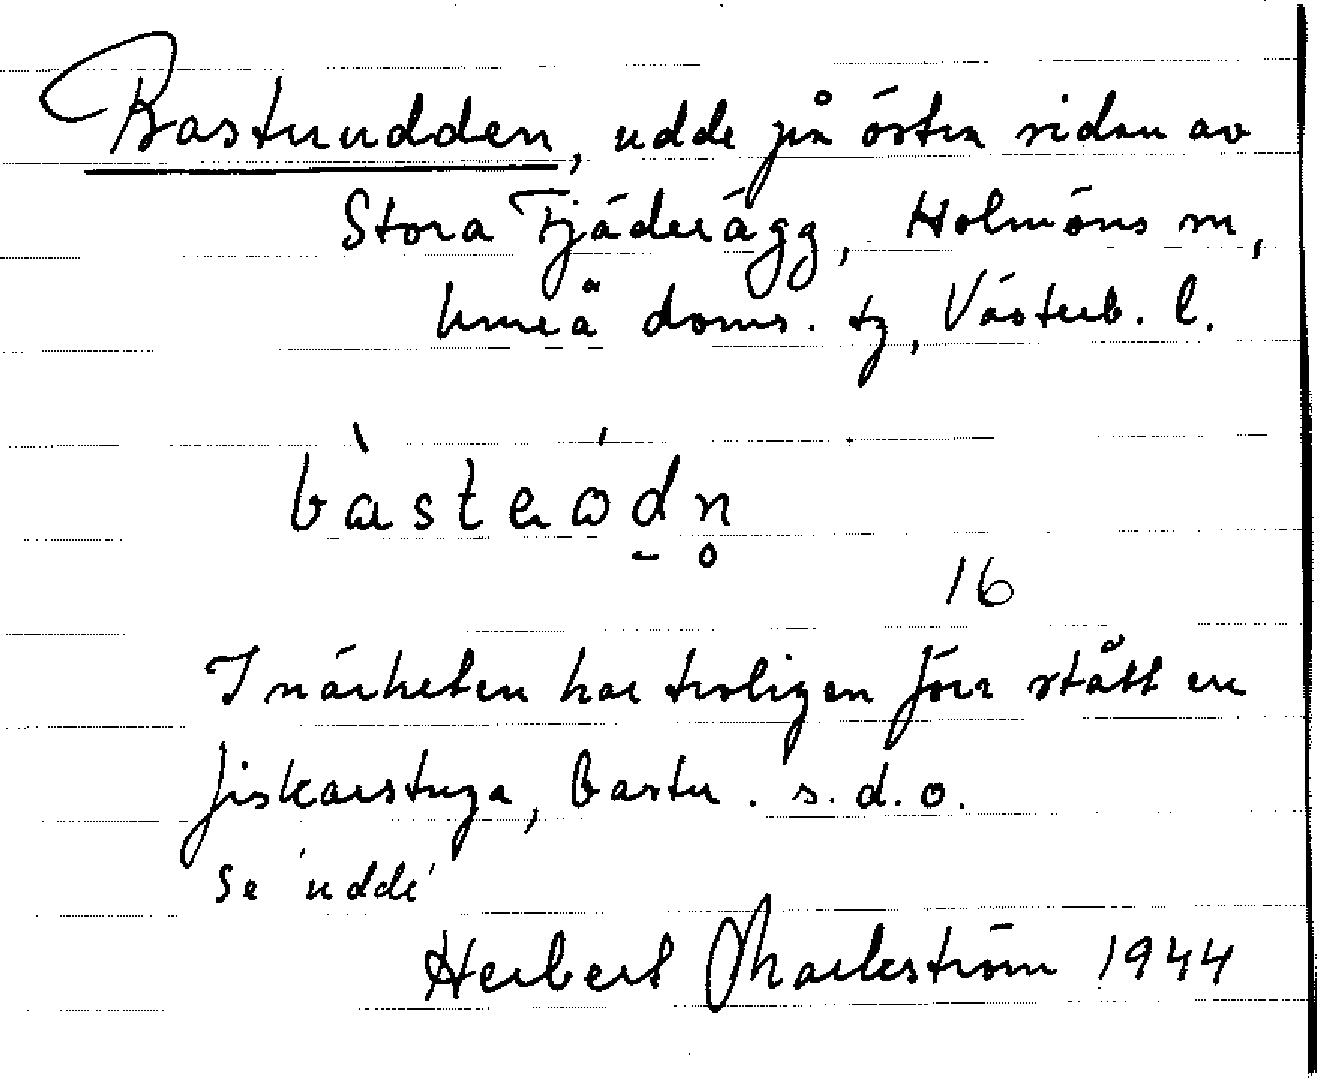 Bastuudden, udde på östra sidan av
Stora Fjäderägg, Holmöns sn,
Umeå doms. tg, Västerb. l.
bàsteódn̥
16
I närheten har troligen förr stått en
fiskarstuga, bastu. s.d.o.
Se 'udde'
Herbert Markström 1944